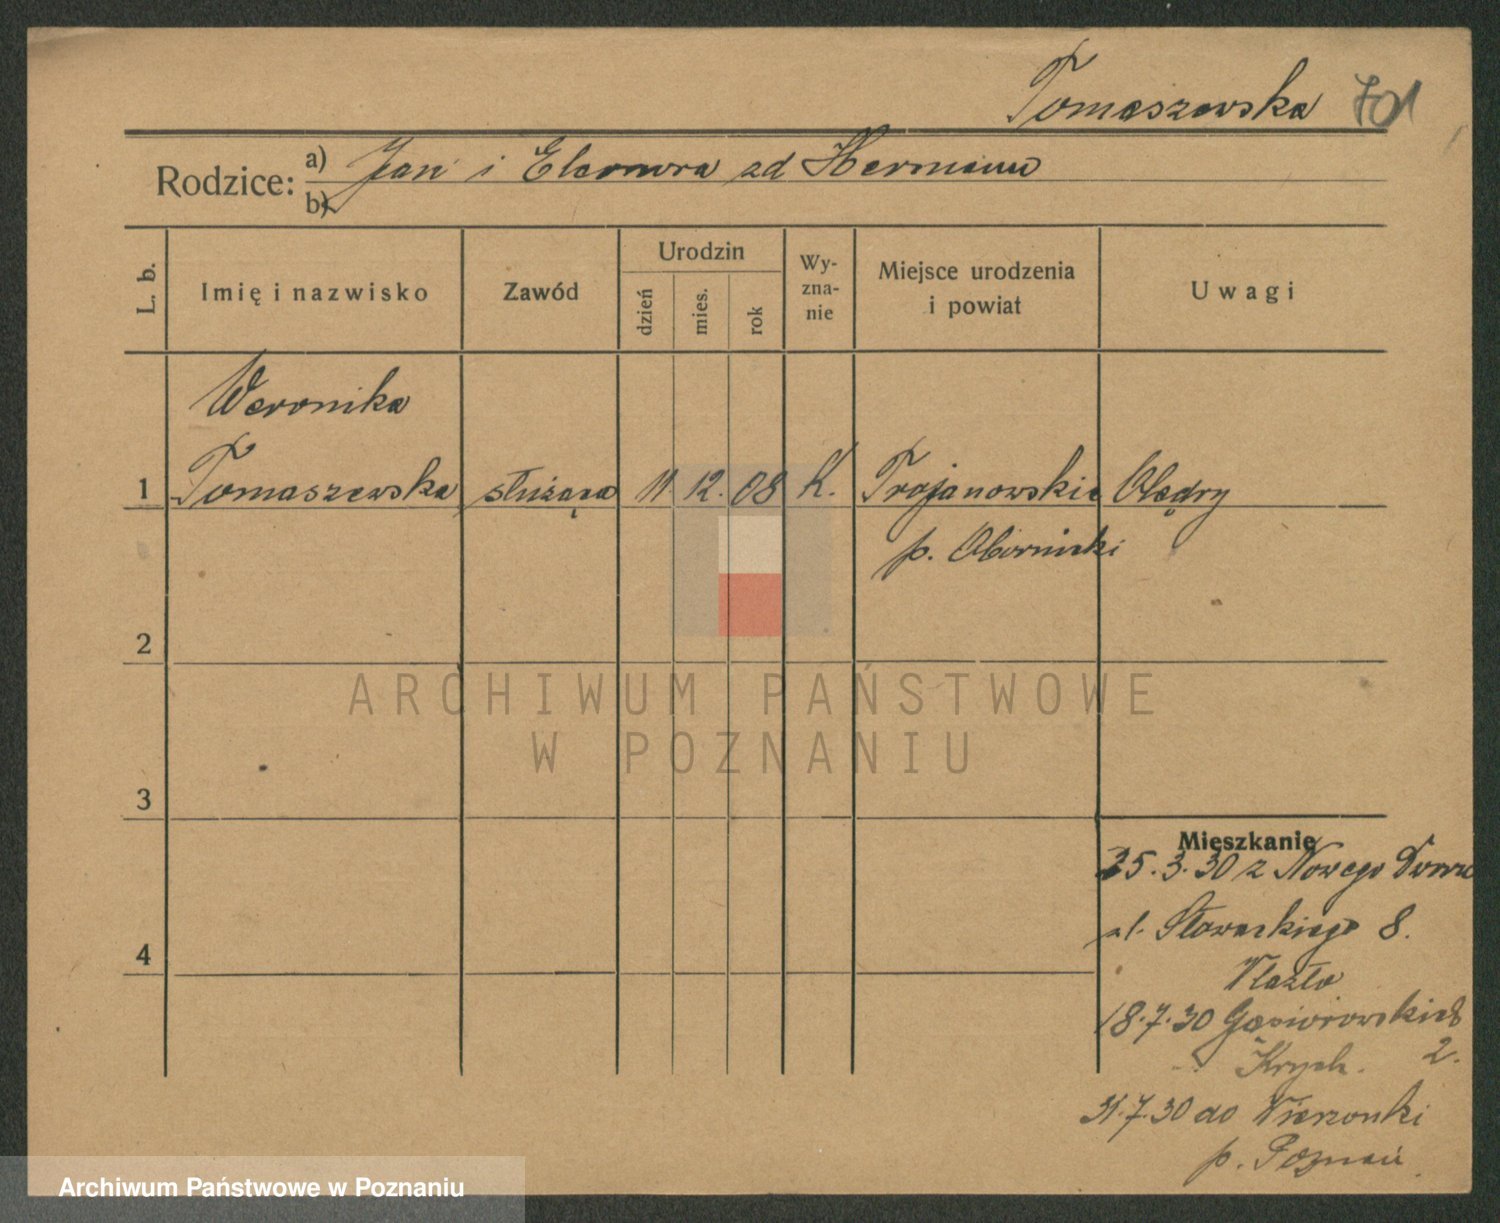 Tomaszewska 701
Rodzice: a) Jan i Eleonora zd Hermann
b)
L. b.
Imię i nazwisko
Zawód
Urodzin
dzień
mies.
rok
Wy-
zna-
nie
Miejsce urodzenia
i powiat
Uwagi
Weronika
1 Tomaszewska służąca 11. 12. 08 K. Trojanowskie Olędry
p. Oborniki
2
ARCHIWUM PAŃSTWOWE
W POZNANIU
3
Mieszkanie
25.3.30 z Nowego Dworu
ul. Słowackiego 8.
18.7.30 Gąsiorowskich
2.
31.7.30 do Wierzonki
p. Poznań
4
Archiwum Państwowe w Poznaniu